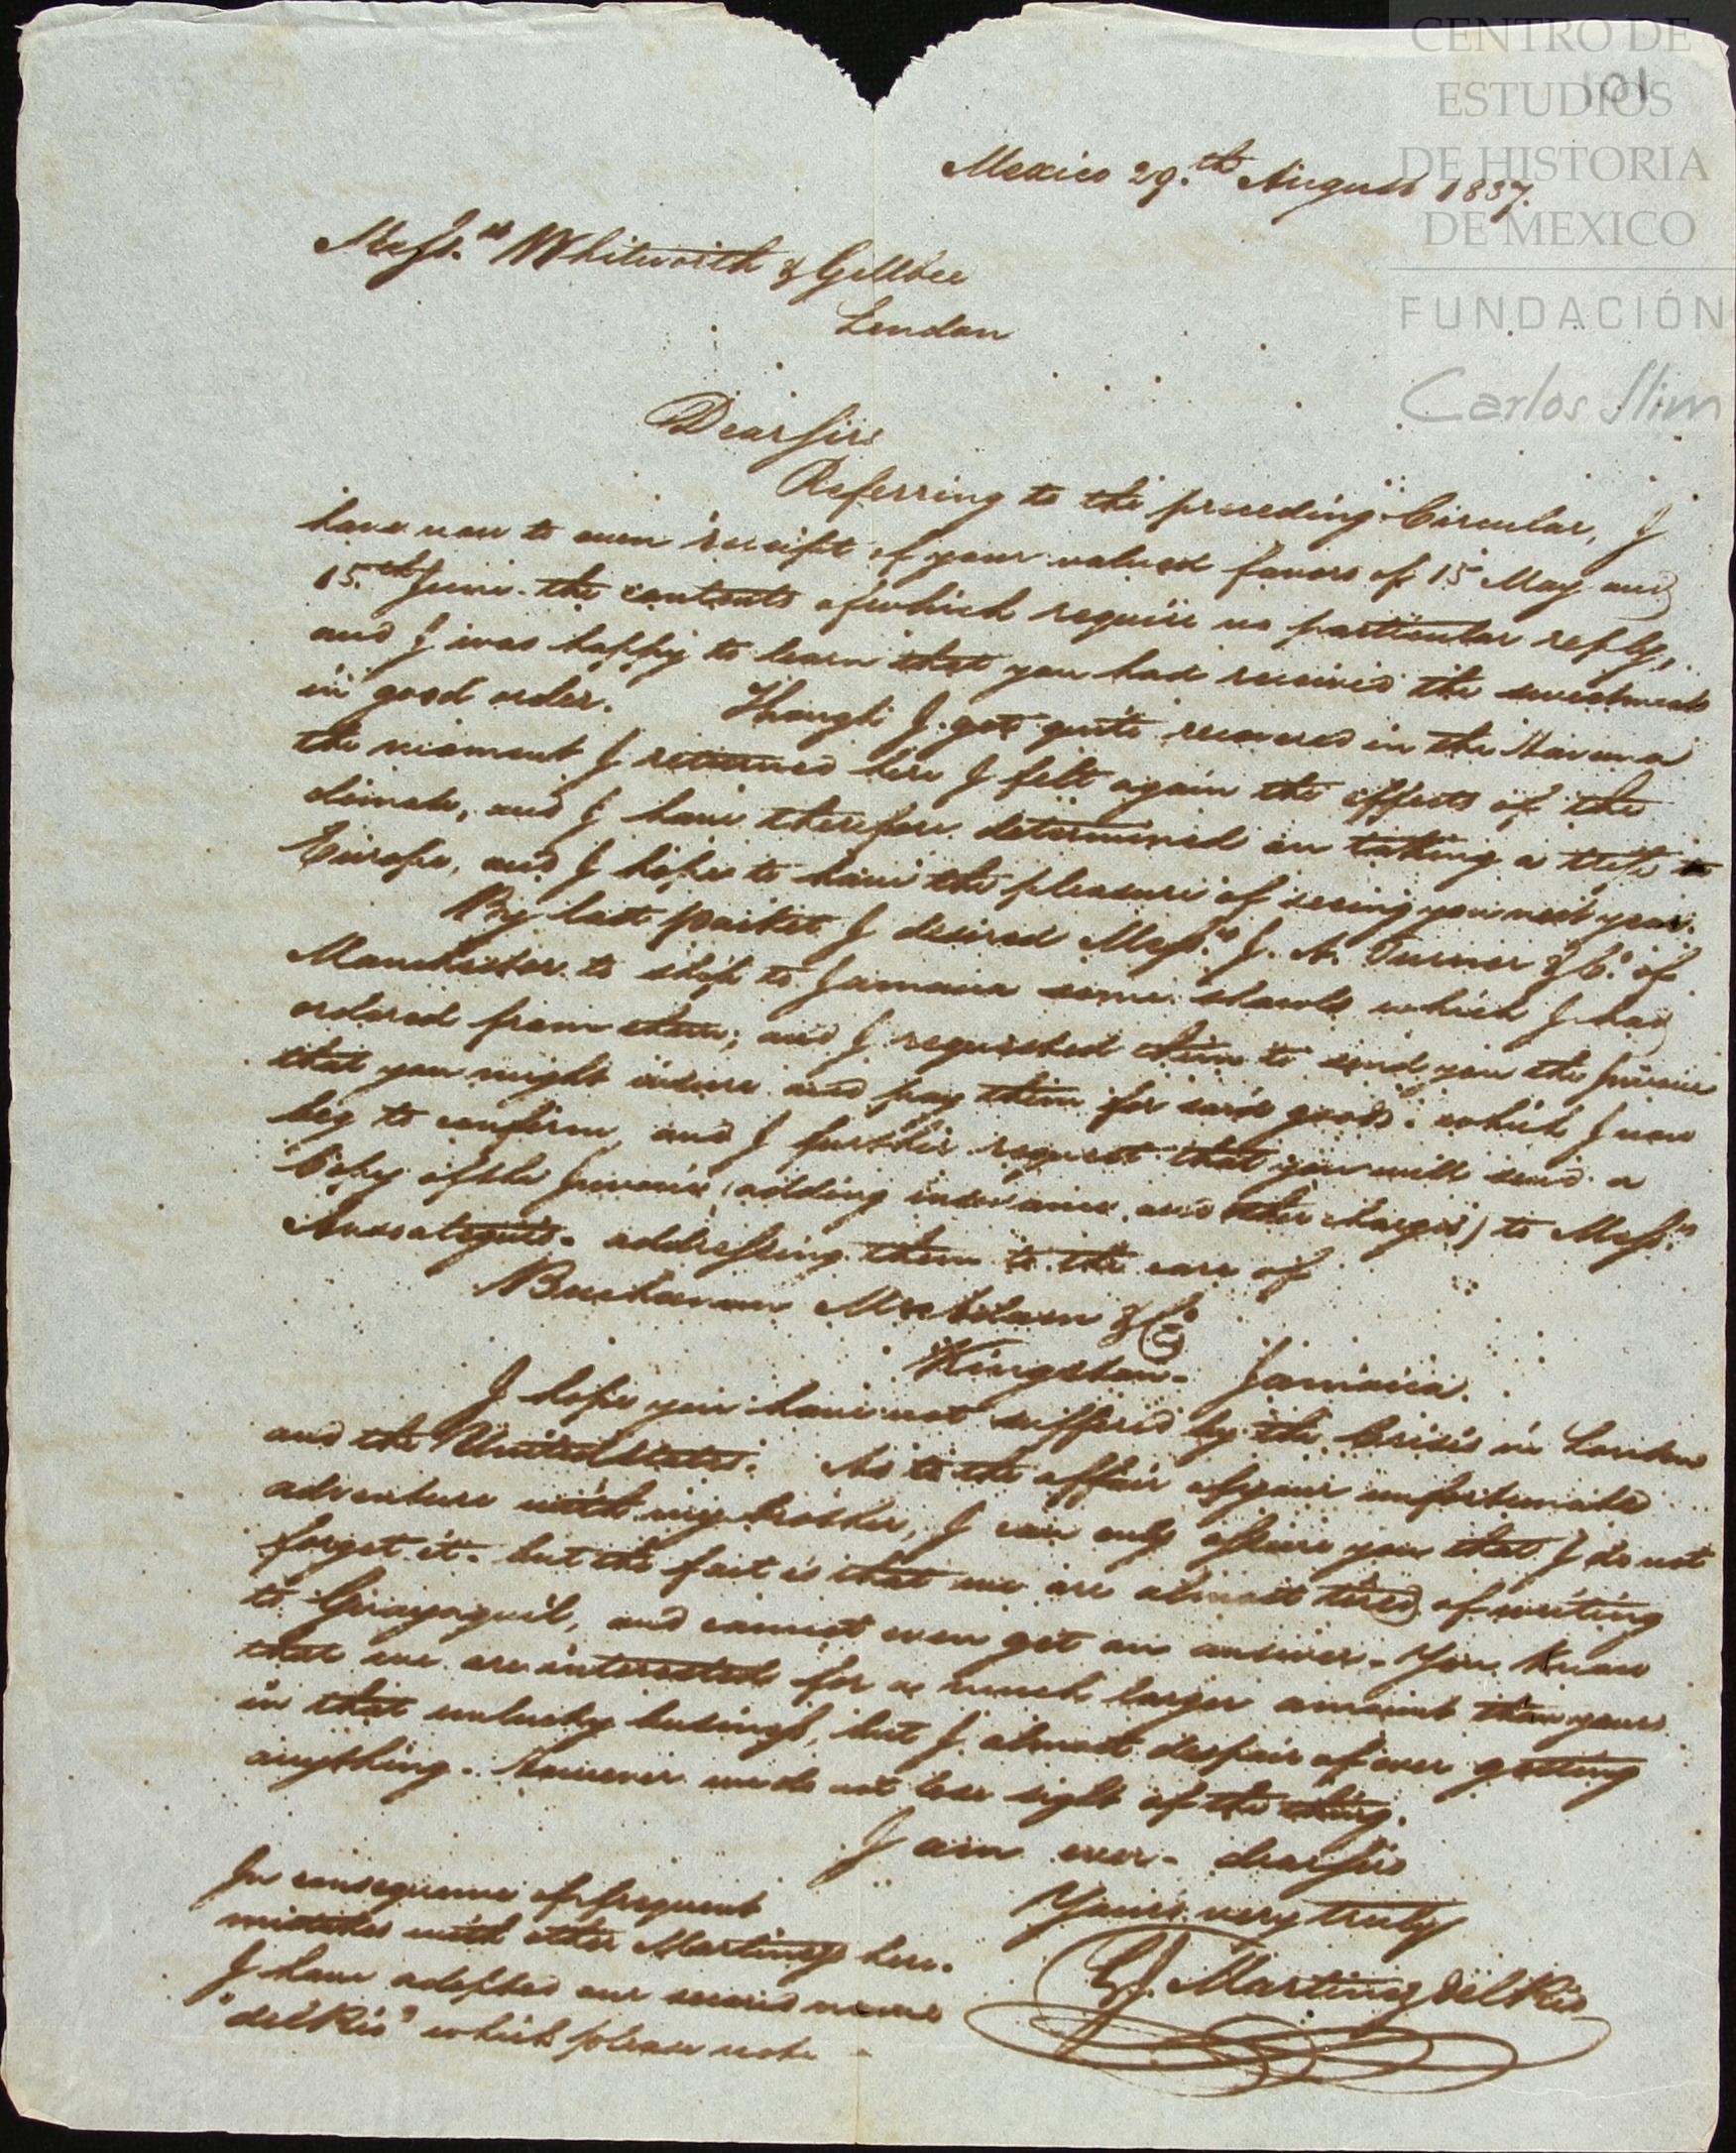 CENTRO DE
ESTUDIOS
DE HISTORIA
DE MEXICO
FUNDACIÓN
Carlos Slim
101
Mexico 29.th August 1837.
Messrs. Whitworth & Gillbee
London
Dear Sirs
Referring to the preceding Circular, I
have now to own receipt of your valued favors of 15 May and
15.th June. the contents of which require no particular reply,
and I was happy to learn that you had received the
in good order. Though I got quite recovered in the Havana
the moment I returned here I felt again the effects of the
climate, and I have therefore determined on taking a trip to
Europe, and I hope to have the pleasure of seeing you next year.
By last packet I desired Messrs. J. A. Turner & Co. of
Manchester to ship to Jamaica some shawls which I had
ordered from them; and I requested them to send you the Invoice
that you might insure and pay them for said goods. which I now
beg to confirm, and I further request that you will send a
Copy of the Invoice (adding insurance and other charges) to Messrs.
addressing them to the care of
Buchanan & Co
Kingston - Jamaica.
I hope you have not suffered by the Crisis in London
and the United States. As to the affair of your unfortunate
adventure with my brother, I can only assure you that I do not
forget it. but the fact is that we are almost tired of writing
to Guayaquil, and cannot even get an answer. You know
that we are interested for a much larger amount than yours
in that unlucky business, but I almost despair of ever getting
anything. However we do not lose sight of the thing.
I am ever - dear Sirs
Yours very truly
G. Martinez del Rio
In consequence of frequent
mistakes with other Martinez here.
I have adopted our second name
"del Rio" which please note